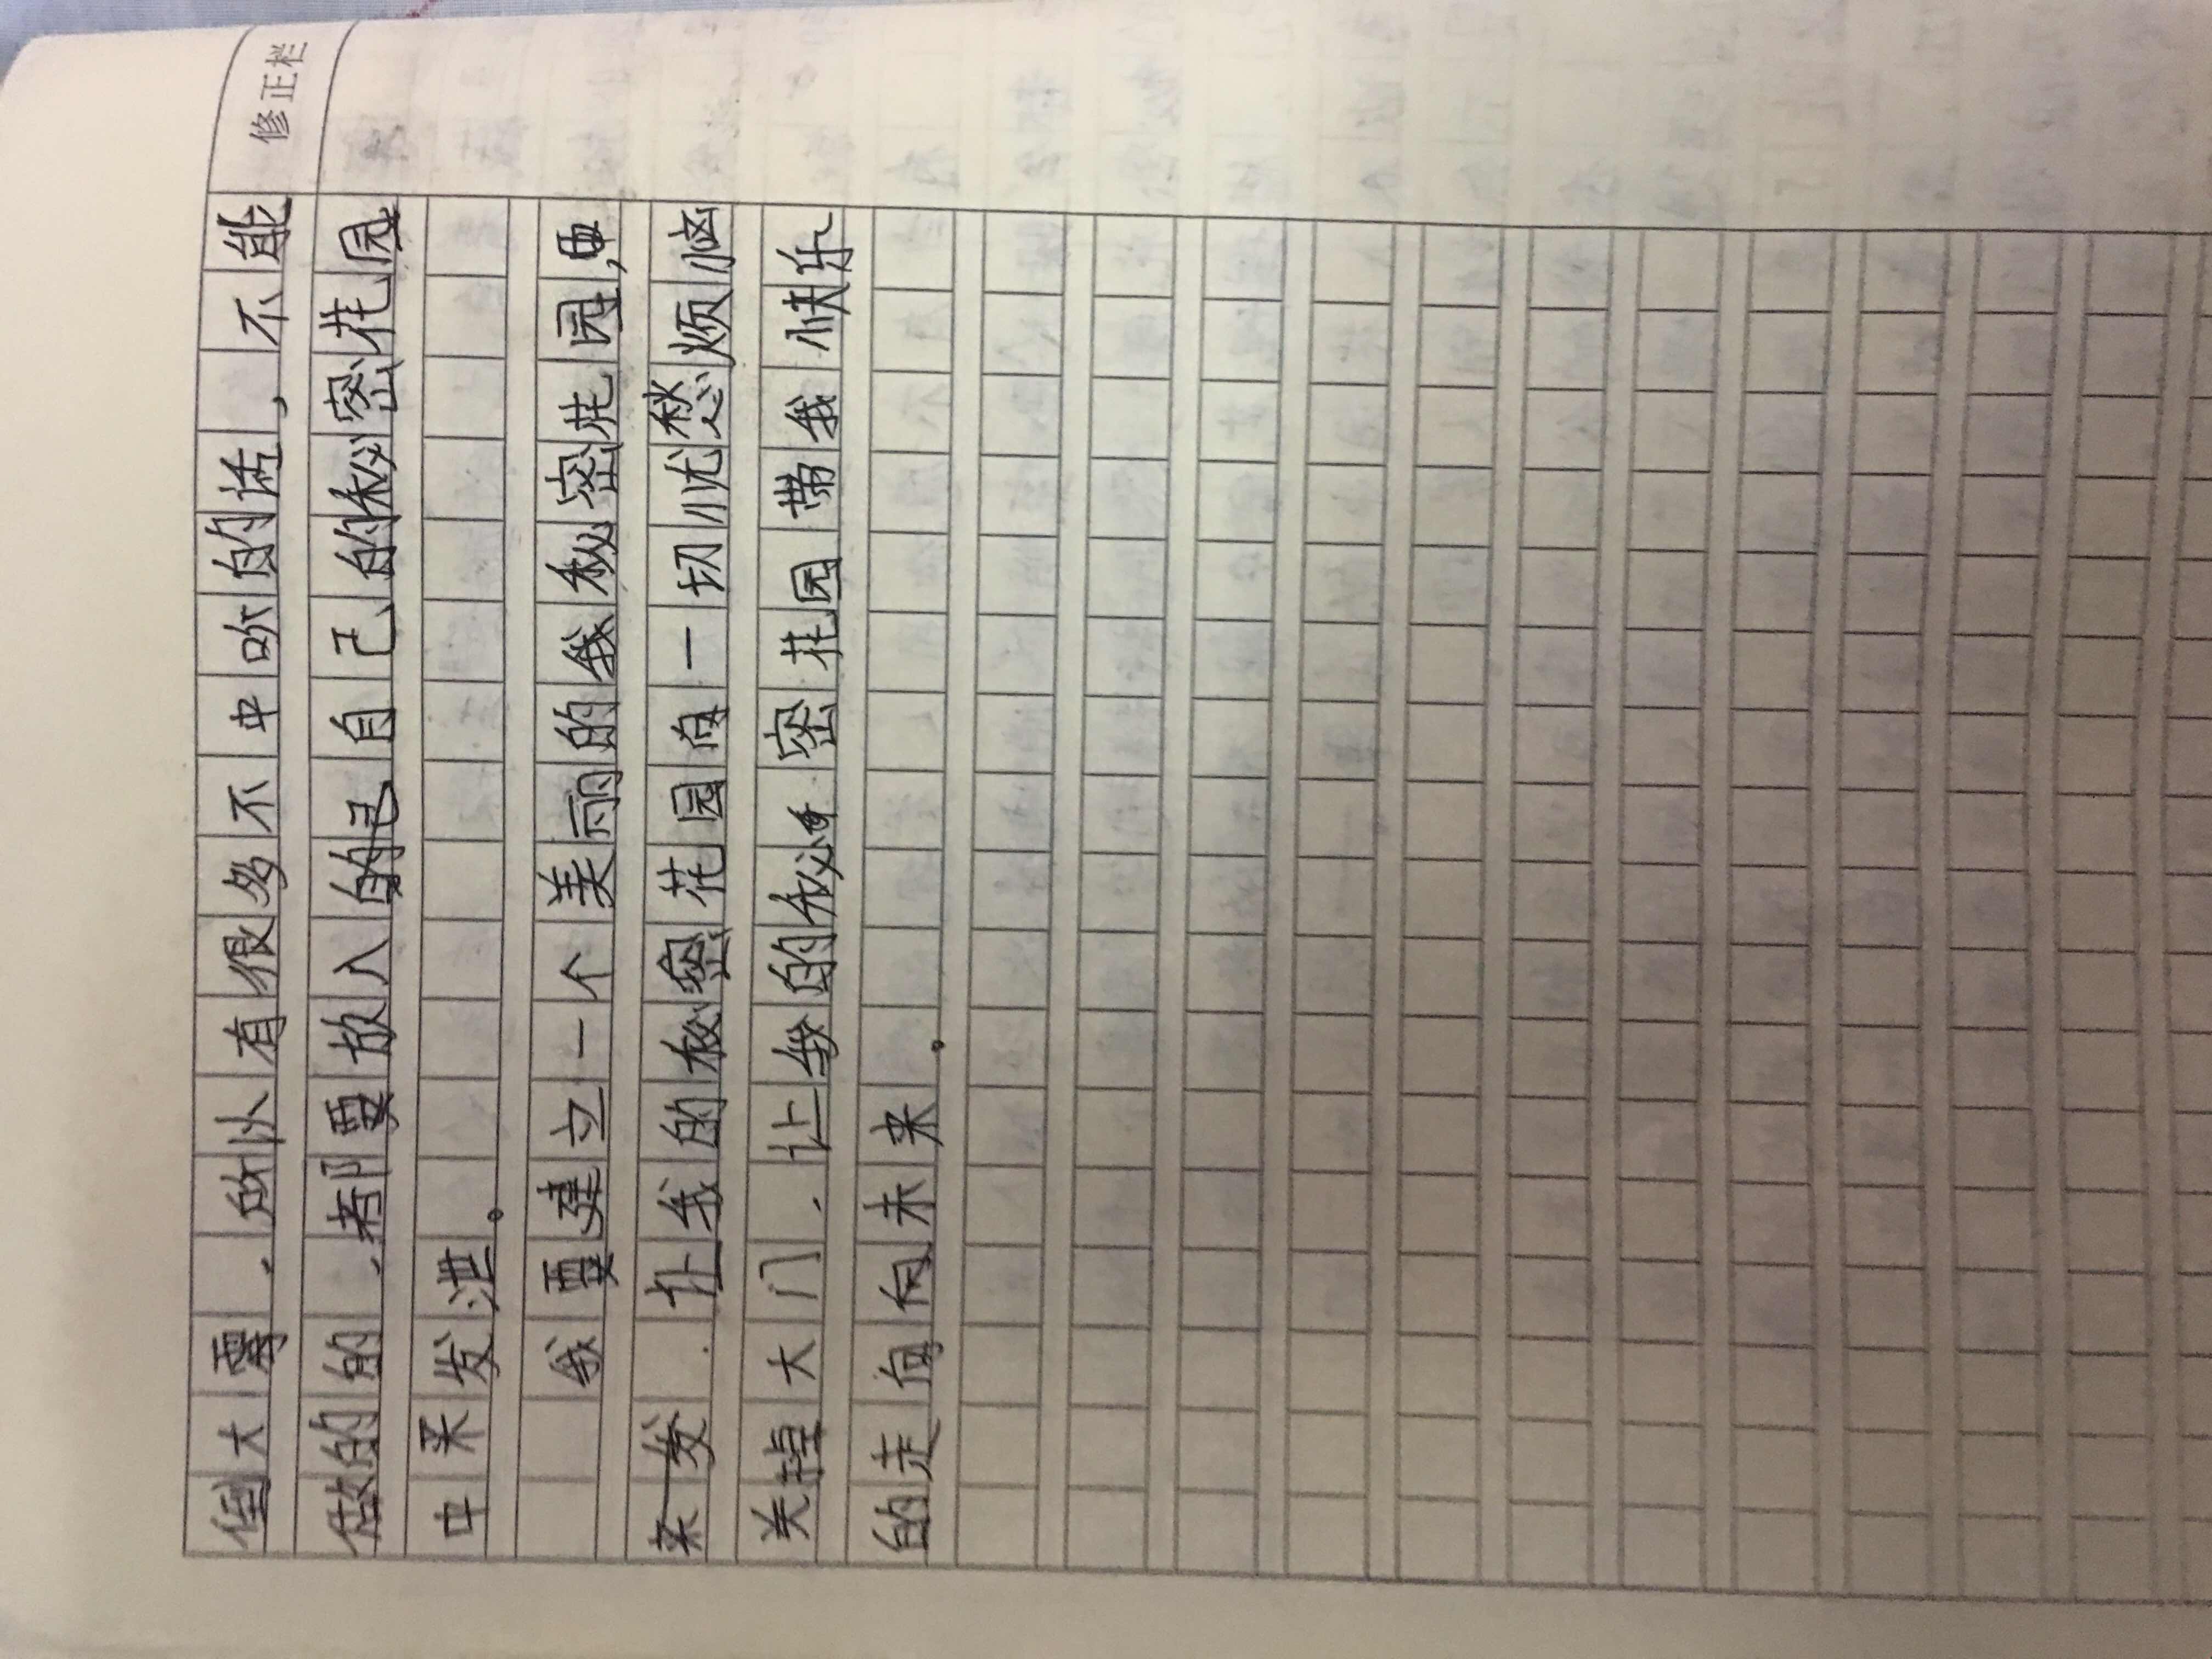 修正栏
倒大霉，所以有很多不中听的话，不能
做的的，都要放入自己的秘密花园
中来发泄。
我要建立一个美丽的我秘密花园,
，让我的秘密花园向一切忧愁烦恼
关掉大门，让我的秘密花园带我快乐
的走向向未来。